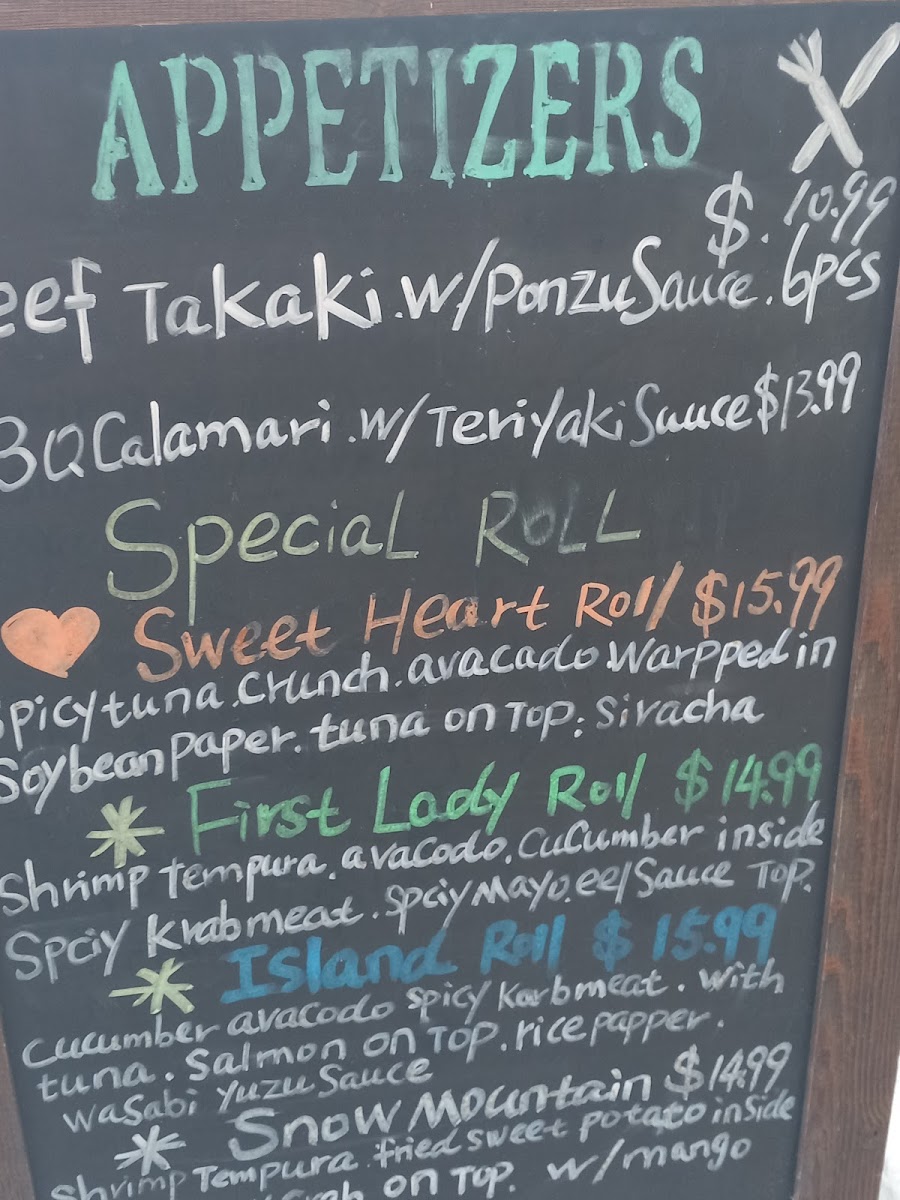 APPETIZERS
$. 10.99
eef Takaki.w/PonzuSauce.6pcs
BQCalamari.w/TeriyakiSauce$13.99
Special Roll
Sweet Heart Roll $15.99
Spicytuna.Crunch.avacado.Warpped in
Soybean Paper.tuna on Top. Siracha
* First Lady Roll $14.99
Shrimp tempura.avacodo.cucumber inside
Spciy Krabmeat.SpciyMayo.eelSauce Top.
* Island Roll $15.99
Cucumber avacodo Spicy Karbmeat. with
tuna. Salmon on Top.rice papper.
wasabi Yuzu Sauce
* Snow Mountain $14.99
Shrimp Tempura.fried sweet potato inside
on Top. w/mango